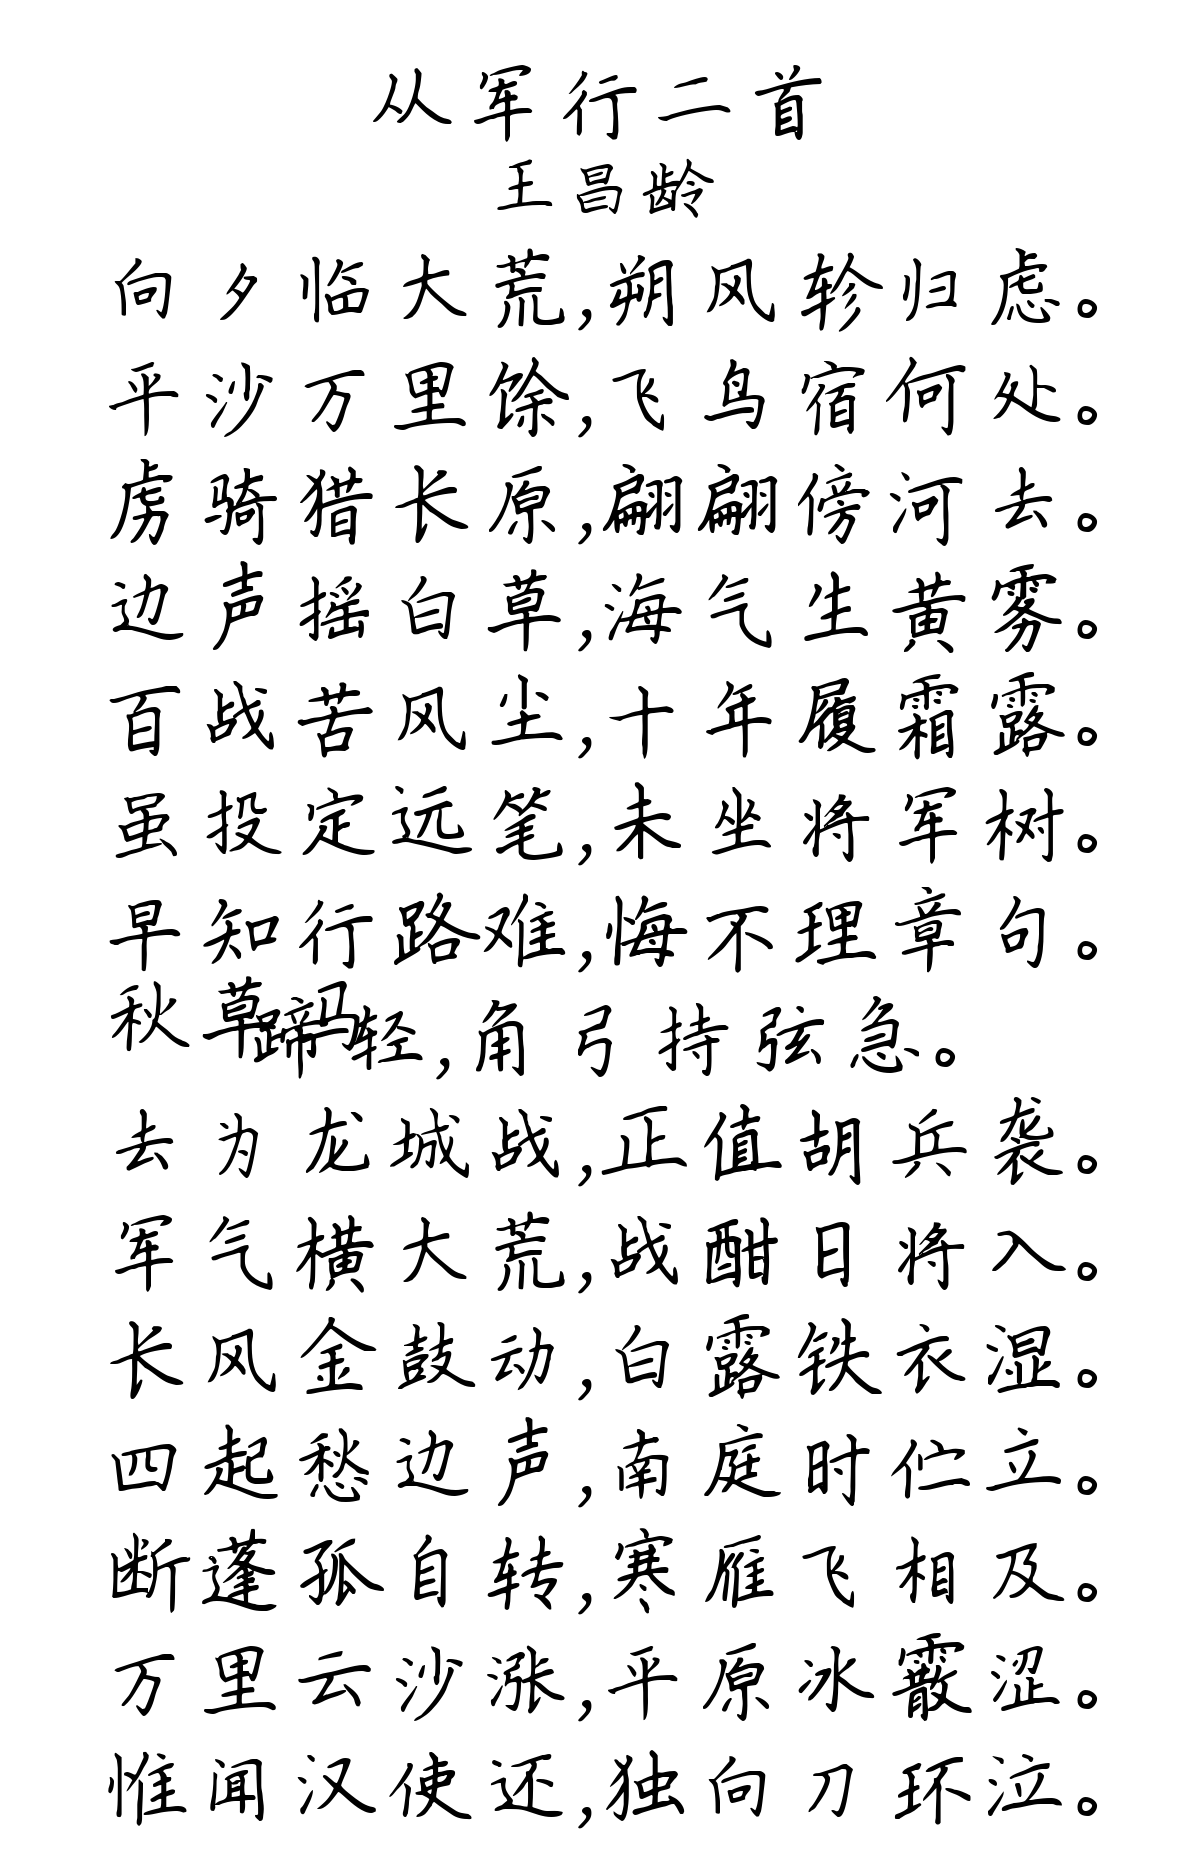 从军行二首
王昌龄
向夕临大荒,朔风轸归虑。
平沙万里馀,飞鸟宿何处。
虏骑猎长原,翩翩傍河去。
边声摇白草,海气生黄雾。
百战苦风尘,十年履霜露。
虽投定远笔,未坐将军树。
早知行路难,悔不理章句。
秋草马蹄轻,角弓持弦急。
去为龙城战,正值胡兵袭。
军气横大荒,战酣日将入。
长风金鼓动,白露铁衣湿。
四起愁边声,南庭时伫立。
断蓬孤自转,寒雁飞相及。
万里云沙涨,平原冰霰涩。
惟闻汉使还,独向刀环泣。